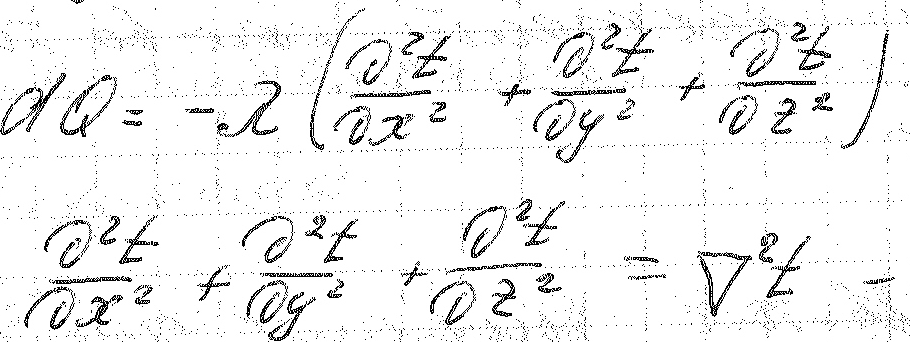 dQ = -λ (∂²t/∂x² + ∂²t/∂y² + ∂²t/∂z²)
∂²t/∂x² + ∂²t/∂y² + ∂²t/∂z² = ∇²t -